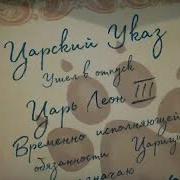 Царский Указ
Ушел в отпуск
Царь Леон III
Временно исполняющей
обязанности Цариц
значаю